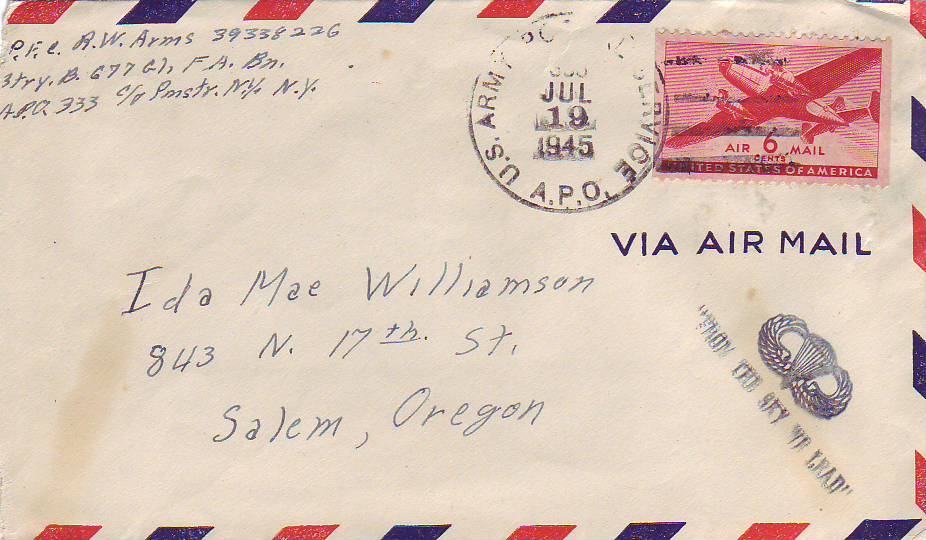 P.F.C. A.W. Arms 39338226
Btry. B. 677 Gli F.A. Bn.
A.P.O. 333 c/o Pmstr. N.Y. N.Y.
U.S. ARMY SERVICE
JUL
19
1945
A.P.O.
AIR 6 MAIL
CENTS
UNITED STATES OF AMERICA
VIA AIR MAIL
Ida Mae Williamson
843 N. 17th. St.
Salem, Oregon
"FROM THE SKY WE LEAD"